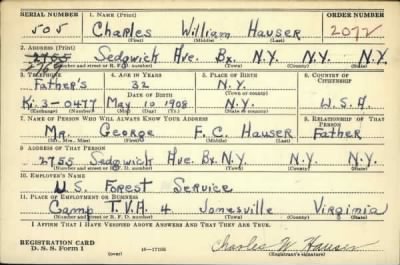 SERIAL NUMBER 1. NAME (Print) ORDER NUMBER
505 Charles William Hauser 2072
(First) (Middle) (Last)
2. ADDRESS (Print)
2755 Sedgwick Ave. Bx. N.Y. N.Y. N.Y.
(Number and street or R. F. D. number) (Town) (County) (State)
3. TELEPHONE 4. AGE IN YEARS 5. PLACE OF BIRTH 6. COUNTRY OF CITIZENSHIP
Father's 32 N.Y.
DATE OF BIRTH (Town or county)
Ki. 3-0477 May 10 1908 N.Y. U.S.A.
(Exchange) (Number) (Mo.) (Day) (Yr.) (State or country)
7. NAME OF PERSON WHO WILL ALWAYS KNOW YOUR ADDRESS 8. RELATIONSHIP OF THAT PERSON
Mr. George F. C. Hauser Father
(Mr., Mrs., Miss) (First) (Middle) (Last)
9. ADDRESS OF THAT PERSON
2755 Sedgwick Ave. Bx. N.Y. N.Y. N.Y.
(Number and street or R. F. D. number) (Town) (County) (State)
10. EMPLOYER'S NAME
U.S. Forest Service
11. PLACE OF EMPLOYMENT OR BUSINESS
Camp T.V.A. 4 Jonesville Virginia
(Number and street or R. F. D. number) (Town) (County) (State)
I AFFIRM THAT I HAVE VERIFIED ABOVE ANSWERS AND THAT THEY ARE TRUE.
REGISTRATION CARD
D. S. S. FORM 1 (over) 16-17105 Charles W. Hauser
(Registrant's signature)